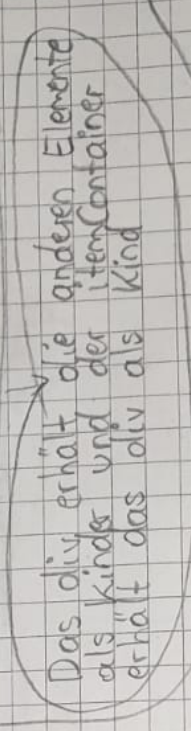 Das div erhält die anderen Elemente
als Kinder und der itemContainer
erhält das div als Kind